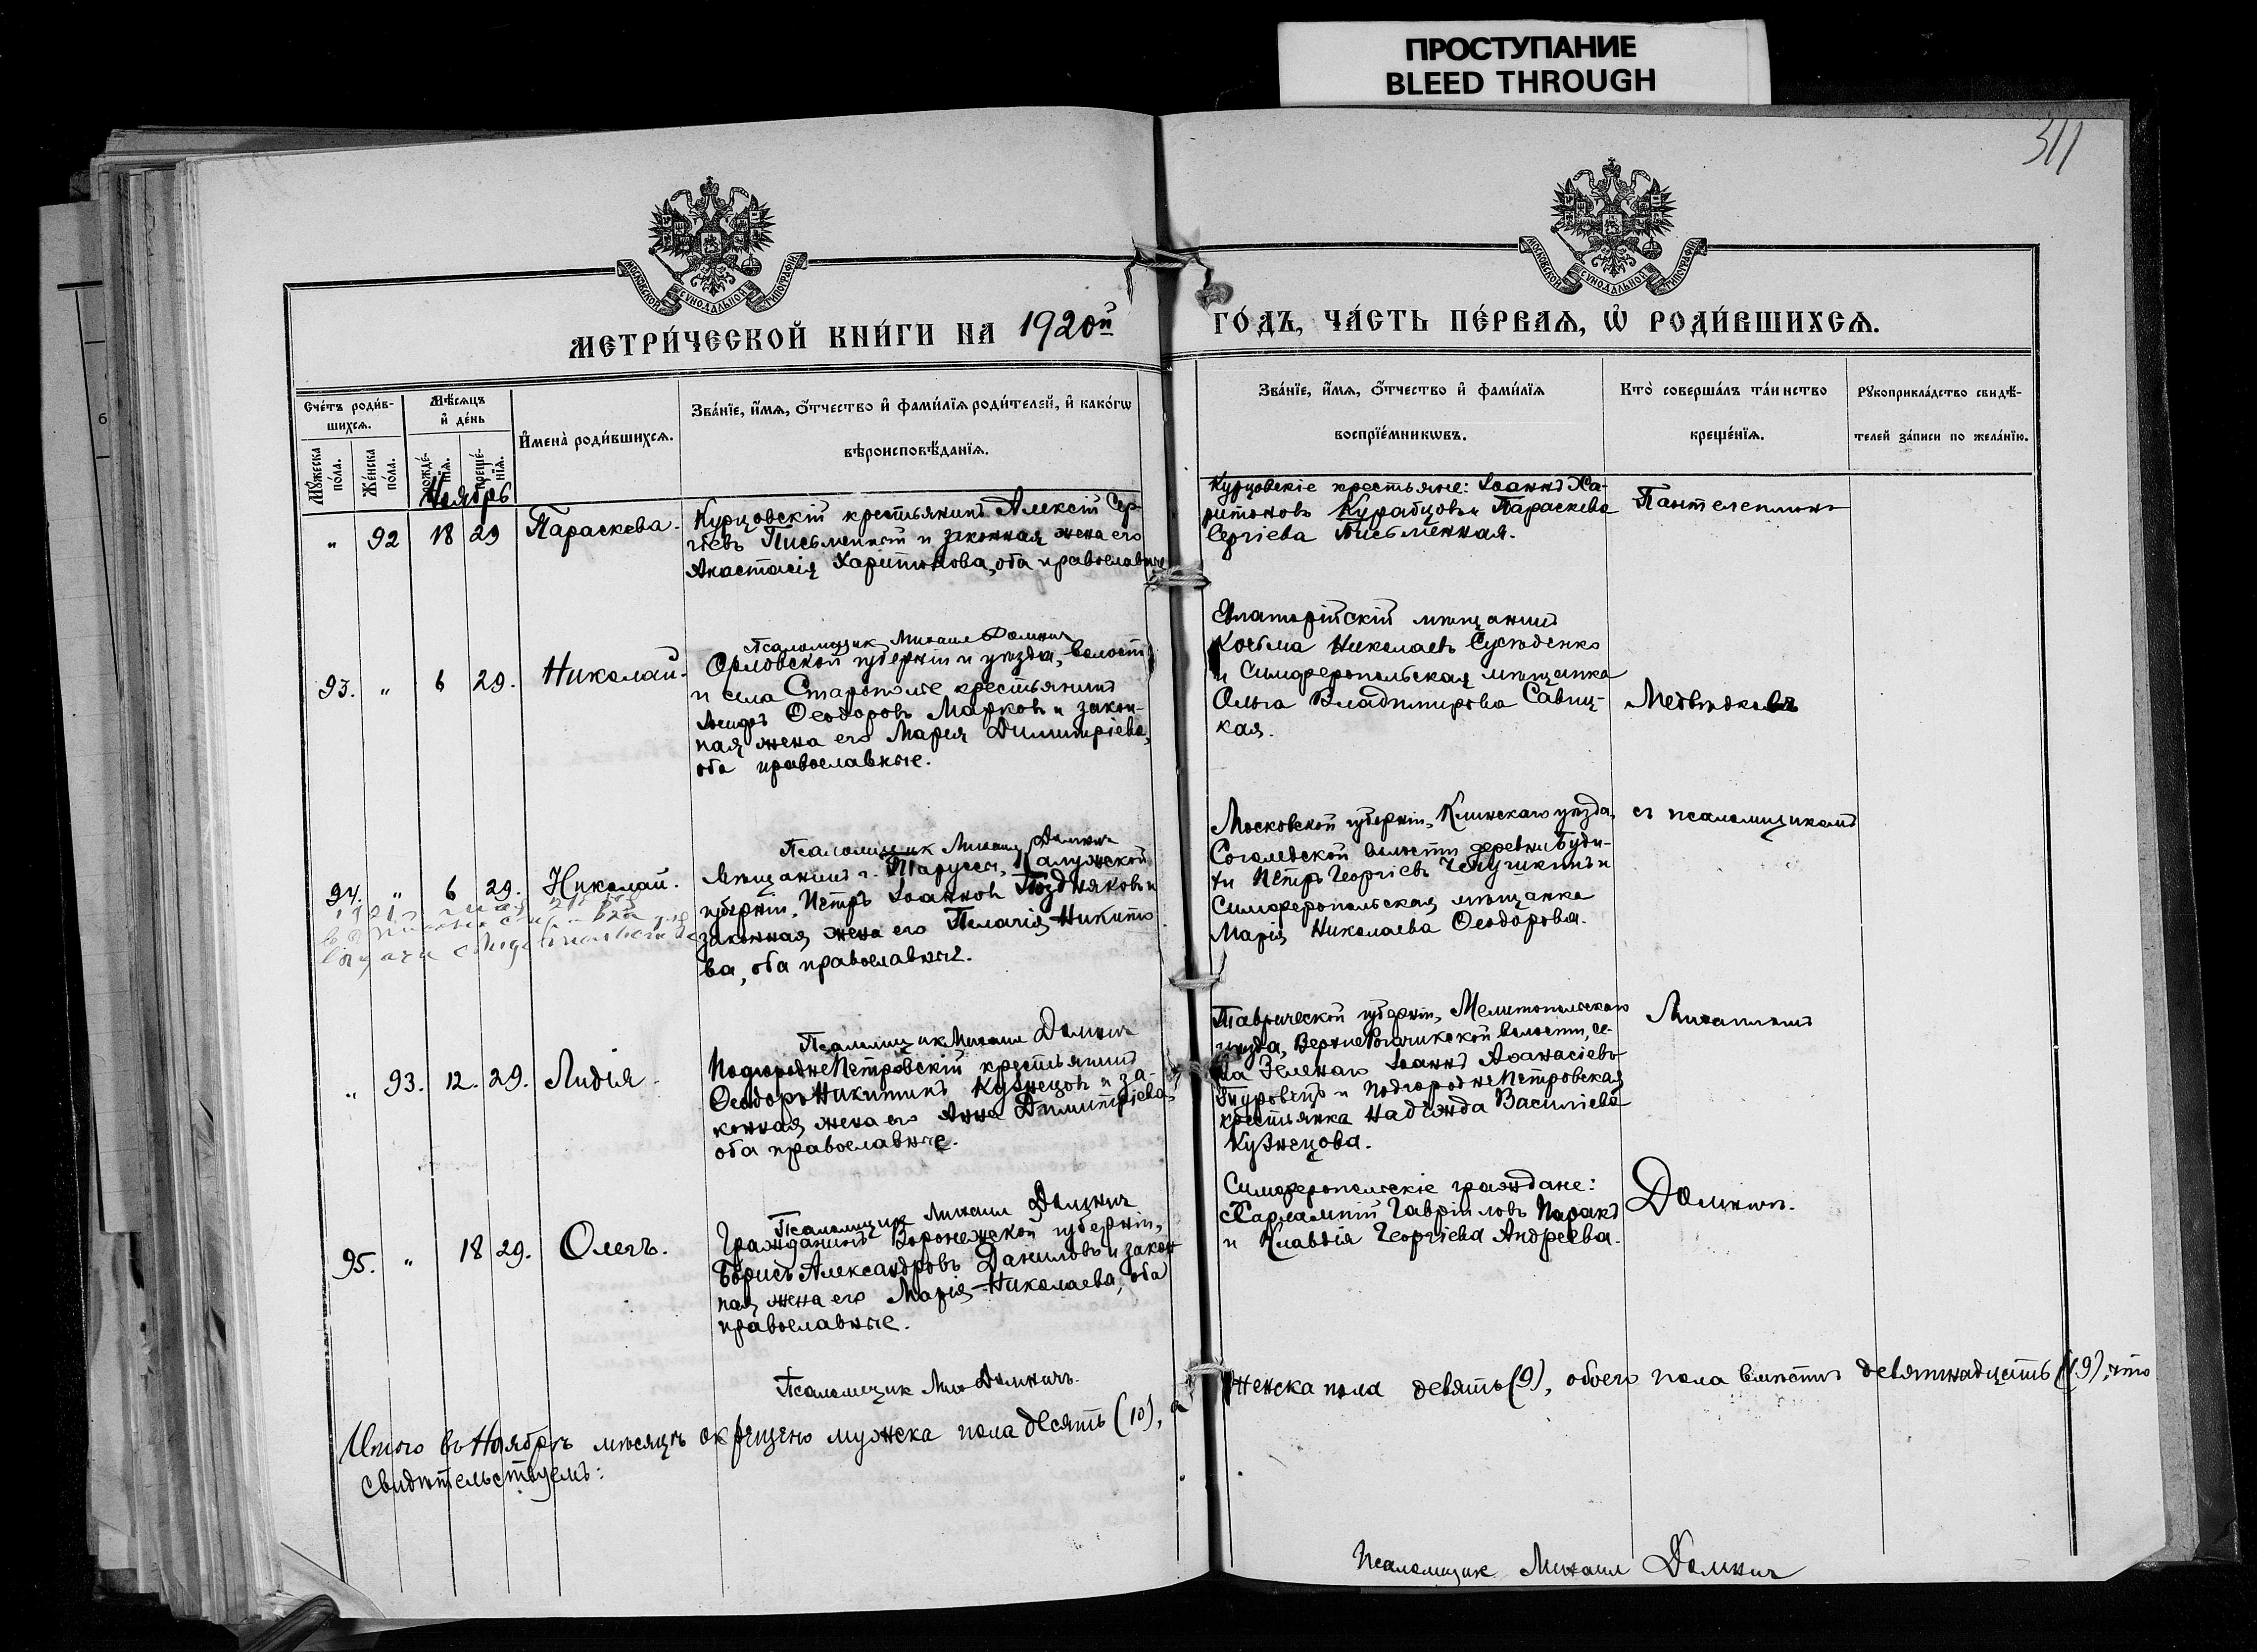 ПРОСТУПАНИЕ
BLEED THROUGH
311
МОСКОВСКОЙ СѴНОДАЛЬНОЙ ТИПОГРАФІИ
МОСКОВСКОЙ СѴНОДАЛЬНОЙ ТИПОГРАФІИ
МЕТРИ́ЧЕСКОЙ КНИ́ГИ НА 1920й
ГО́ДЪ, ЧА́СТЬ ПЕ́РВАѦ, Ѡ҆ РОДИ́ВШИХСѦ.
Сче́тъ роди́в-
шихсѧ.
Мꙋ́жеска по́ла.
Же́нска по́ла.
Мѣ́сѧцъ
и҆ де́нь
рожде́-нїѧ.
креще́-нїѧ.
И҆мена̀ роди́вшихсѧ.
Зва́нїе, и҆́мѧ, ѻ҆́тчество и҆ фами́лїѧ роди́телей, и҆ како́гѡ
вѣроисповѣ́данїѧ.
Зва́нїе, и҆́мѧ, ѻ҆́тчество и҆ фами́лїѧ
воспрїе́мникѡвъ.
Кто̀ соверша́лъ та́инство
креще́нїѧ.
Рꙋкоприкла́дство свидѣ́-
телей за́писи по жела́нїю.
Ноябрь
" 92 18 29 Параскева.
Курцовскій крестьянинъ Алексій Сер-
гіевъ Письменный и законная жена его
Анастасія Харитонова, оба православные
Курцовскіе крестьяне: Іоаннъ Ха-
ритоновъ Курабцовъ и Параскева
Сергіева Письменная.
Пантелеимонъ
Псаломщик Михаил Домнич
93. " 6 29. Николай.
Орловской губерніи и уѣзда, волости
и села Старополье крестьянинъ
Феодоровъ Марковъ и закон-
ная жена его Марія Димитріева,
оба православные.
Евпаторійскій мѣщанинъ
Косьма Николаевъ
и Симферопольская мѣщанка
Ольга Владимирова Савиц-
кая.
Медвѣдковъ
Псаломщик Михаил Домнич
94. " 6 29. Николай.
1921 г. мая 21
выдачи свидетельства
Мѣщанинъ г. Таруссы, Калужской
губерніи, Петръ Іоанновъ Поздняковъ и
законная жена его Пелагія Никито
ва, оба православные.
Московской губерніи, Клинскаго уѣзда,
Соголевской волости деревни Буди-
Петръ Георгіевъ и
Симферопольская мѣщанка
Марія Николаева Феодорова.
съ псаломщикомъ
Псаломщик Михаил Домнич
" 93. 12. 29. Лидія.
ПодгородНеПетровскій крестьянинъ
Феодоръ Никитинъ Кузнецовъ и за-
конная жена его Анна Димитріева,
оба православные.
Таврической губерніи, Мелитопольскаго
уѣзда, ВерхнеРогачикской волости, се-
ла Зеленаго Іоаннъ Афанасіевъ
и ПодгородНеПетровская
крестьянка Надежда Василіева
Кузнецова.
Михаиломъ
Псаломщик Михаил Домнич
95. " 18 29. Олегъ.
Гражданинъ Воронежской губерніи,
Борисъ Александровъ Даниловъ и закон
ная жена его Марія Николаева, оба
православные.
Симферопольскіе граждане:
Харлампій Гавріиловъ
и Клавдія Георгіева Андреева.
Домничъ.
Псаломщик Мих Домничъ.
Итого въ Ноябрѣ мѣсяцѣ окрещено мужска пола десять (10), а
женска пола девять (9), обоего пола вмѣстѣ девятнадцать (19), что
свидѣтельствуемъ:
Псаломщик Михаил Домнич